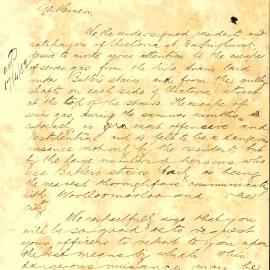 Gentlemen
We the undersigned residents and
ratepayers of Victoria St Darlinghurst
desire to invite your attention to the escape
of sewer gas from the tide drains
under Butlers stairs and from the outlet
shafts on each side of Victoria street
at the top of the stairs. The escape of
sewer gas during the summer months
especially is most offensive and
pestilential and is felt to be a dangerous
nuisance not only by the residents but
by the large numbers of persons who
use Butlers stairs as being
the nearest thoroughfare
with Woolloomooloo and
City
We respectfully urge that you
will be so good as to request
your officers to report to you upon
the best means by which this
dangerous nuisance may be